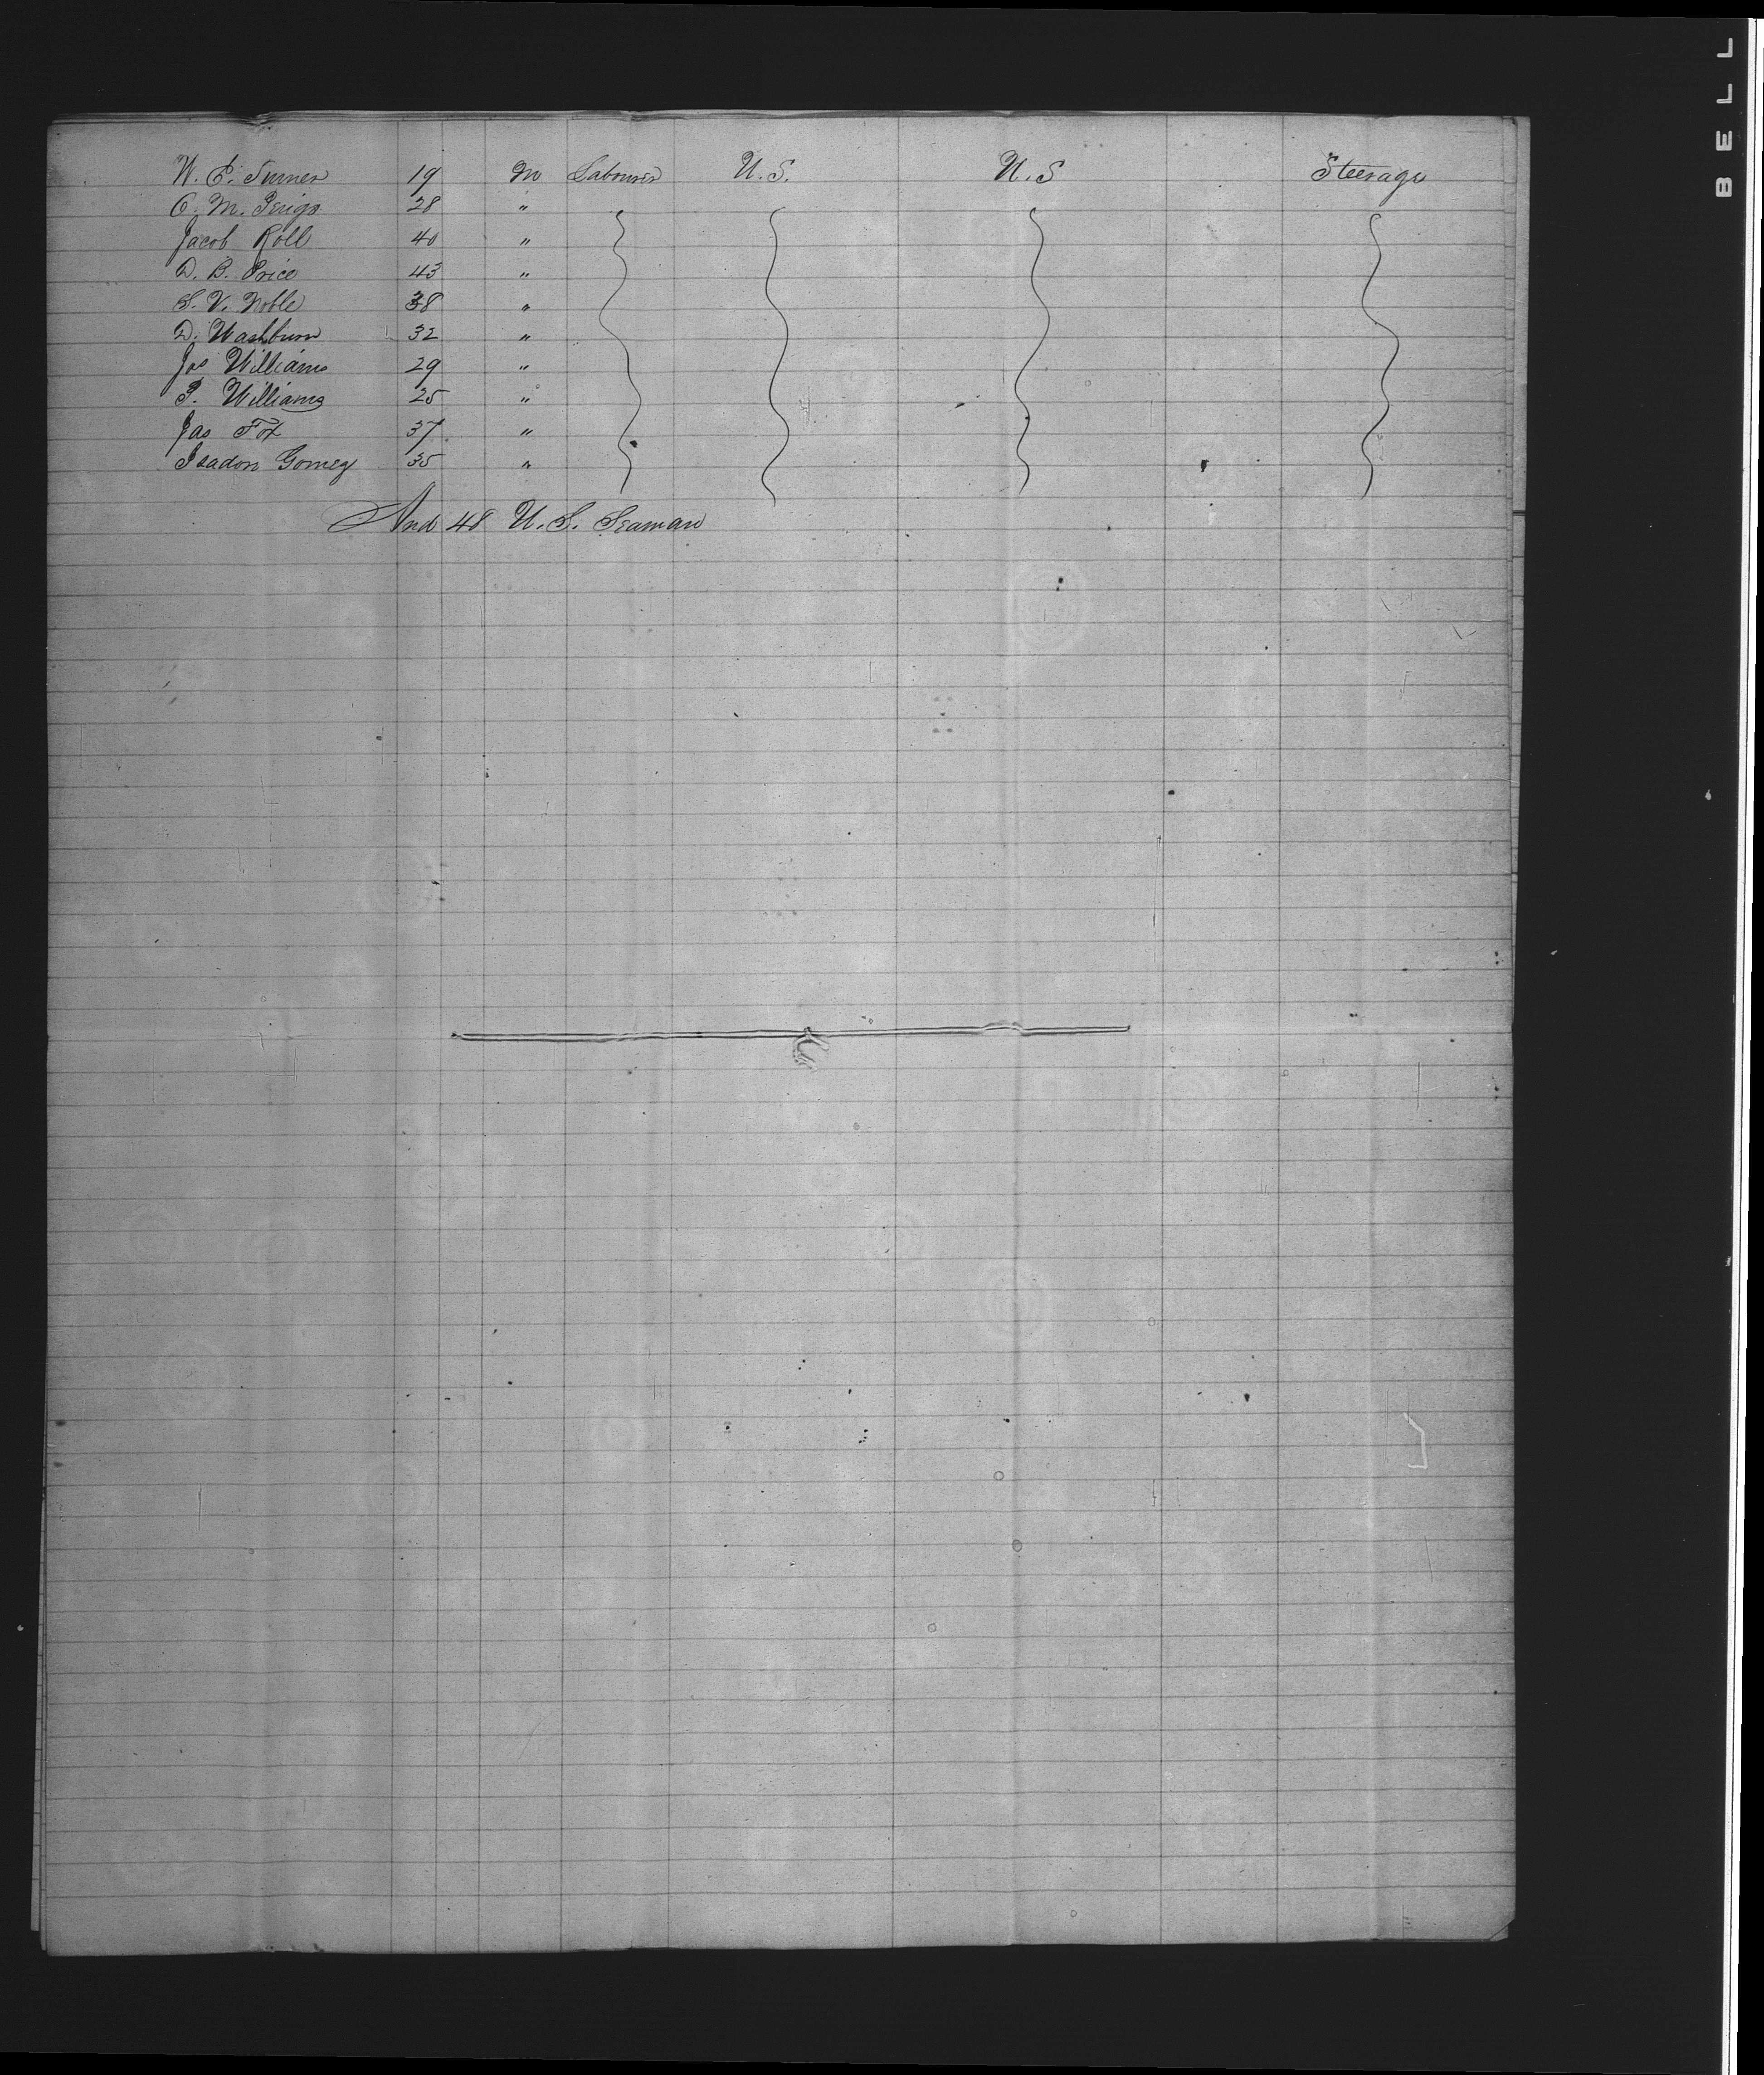 W. P. Turner 19 M Labourer U.S. U.S Steerage
C. M. 28 "
Jacob Roll 40 "
D. B. Price 43 "
S. V. Noble 38 "
D. Washburn 32 "
Jas Williams 29 "
P. Williams 25 "
Jas Fox 37 "
Isadon Gomez 35 "
And 48 U.S. Seaman
BELL